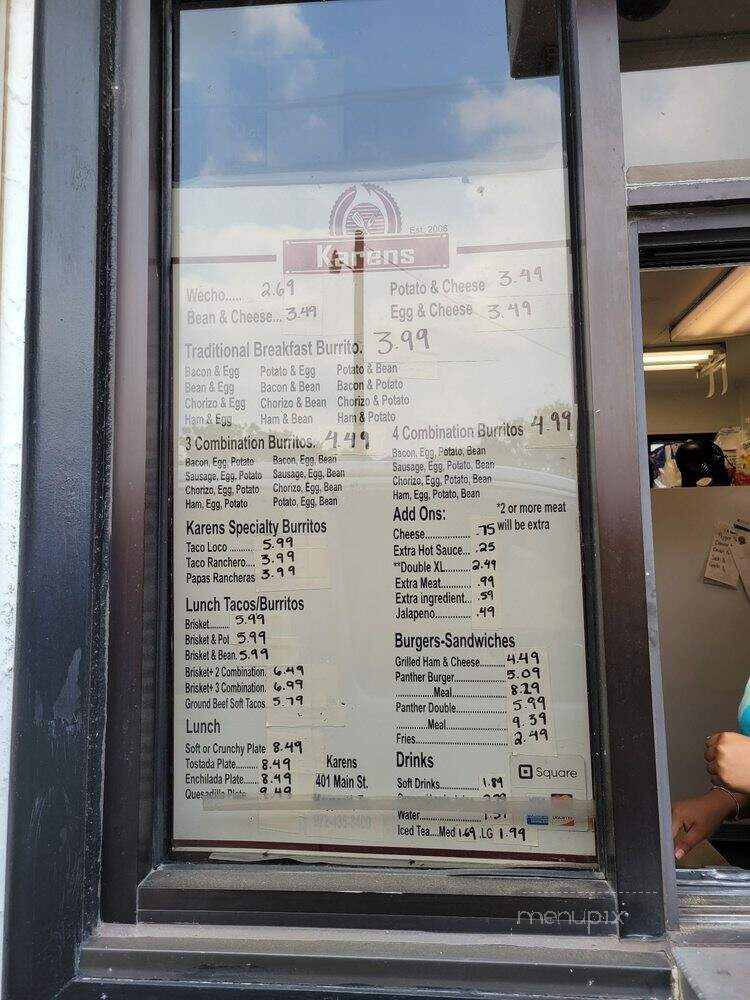 Est. 2006
Karens
Wecho...... 2.69
Bean & Cheese... 3.49
Potato & Cheese 3.49
Egg & Cheese 3.49
Traditional Breakfast Burrito. 3.99
Bacon & Egg Potato & Egg Potato & Bean
Bean & Egg Bacon & Bean Bacon & Potato
Chorizo & Egg Chorizo & Bean Chorizo & Potato
Ham & Egg Ham & Bean Ham & Potato
3 Combination Burritos. 4.49
Bacon, Egg, Potato Bacon, Egg, Bean
Sausage, Egg, Potato Sausage, Egg, Bean
Chorizo, Egg, Potato Chorizo, Egg, Bean
Ham, Egg, Potato Potato, Egg, Bean
4 Combination Burritos 4.99
Bacon, Egg, Potato, Bean
Sausage, Egg, Potato, Bean
Chorizo, Egg, Potato, Bean
Ham, Egg, Potato, Bean
Karens Specialty Burritos
Taco Loco ......... 5.99
Taco Ranchero.... 3.99
Papas Rancheras 3.99
Add Ons:
*2 or more meat
will be extra
Cheese................... .75
Extra Hot Sauce... .25
**Double XL......... 2.49
Extra Meat............. .99
Extra ingredient... .59
Jalapeno............... .49
Lunch Tacos/Burritos
Brisket......... 5.99
Brisket & Pot 5.99
Brisket & Bean. 5.99
Brisket+ 2 Combination. 6.49
Brisket+ 3 Combination. 6.99
Ground Beef Soft Tacos 5.79
Burgers-Sandwiches
Grilled Ham & Cheese......... 4.49
Panther Burger.................. 5.09
.............Meal.................... 8.29
Panther Double................. 5.99
.............Meal.................... 9.39
Fries................................ 2.49
Lunch
Soft or Crunchy Plate 8.49
Tostada Plate....... 8.49
Enchilada Plate...... 8.49
Quesadilla Plate 9.49
Karens
401 Main St.
Drinks
Soft Drinks.............. 1.89
Water.................
Iced Tea....Med 1.69 .LG 1.99
Square
VISA
menupix